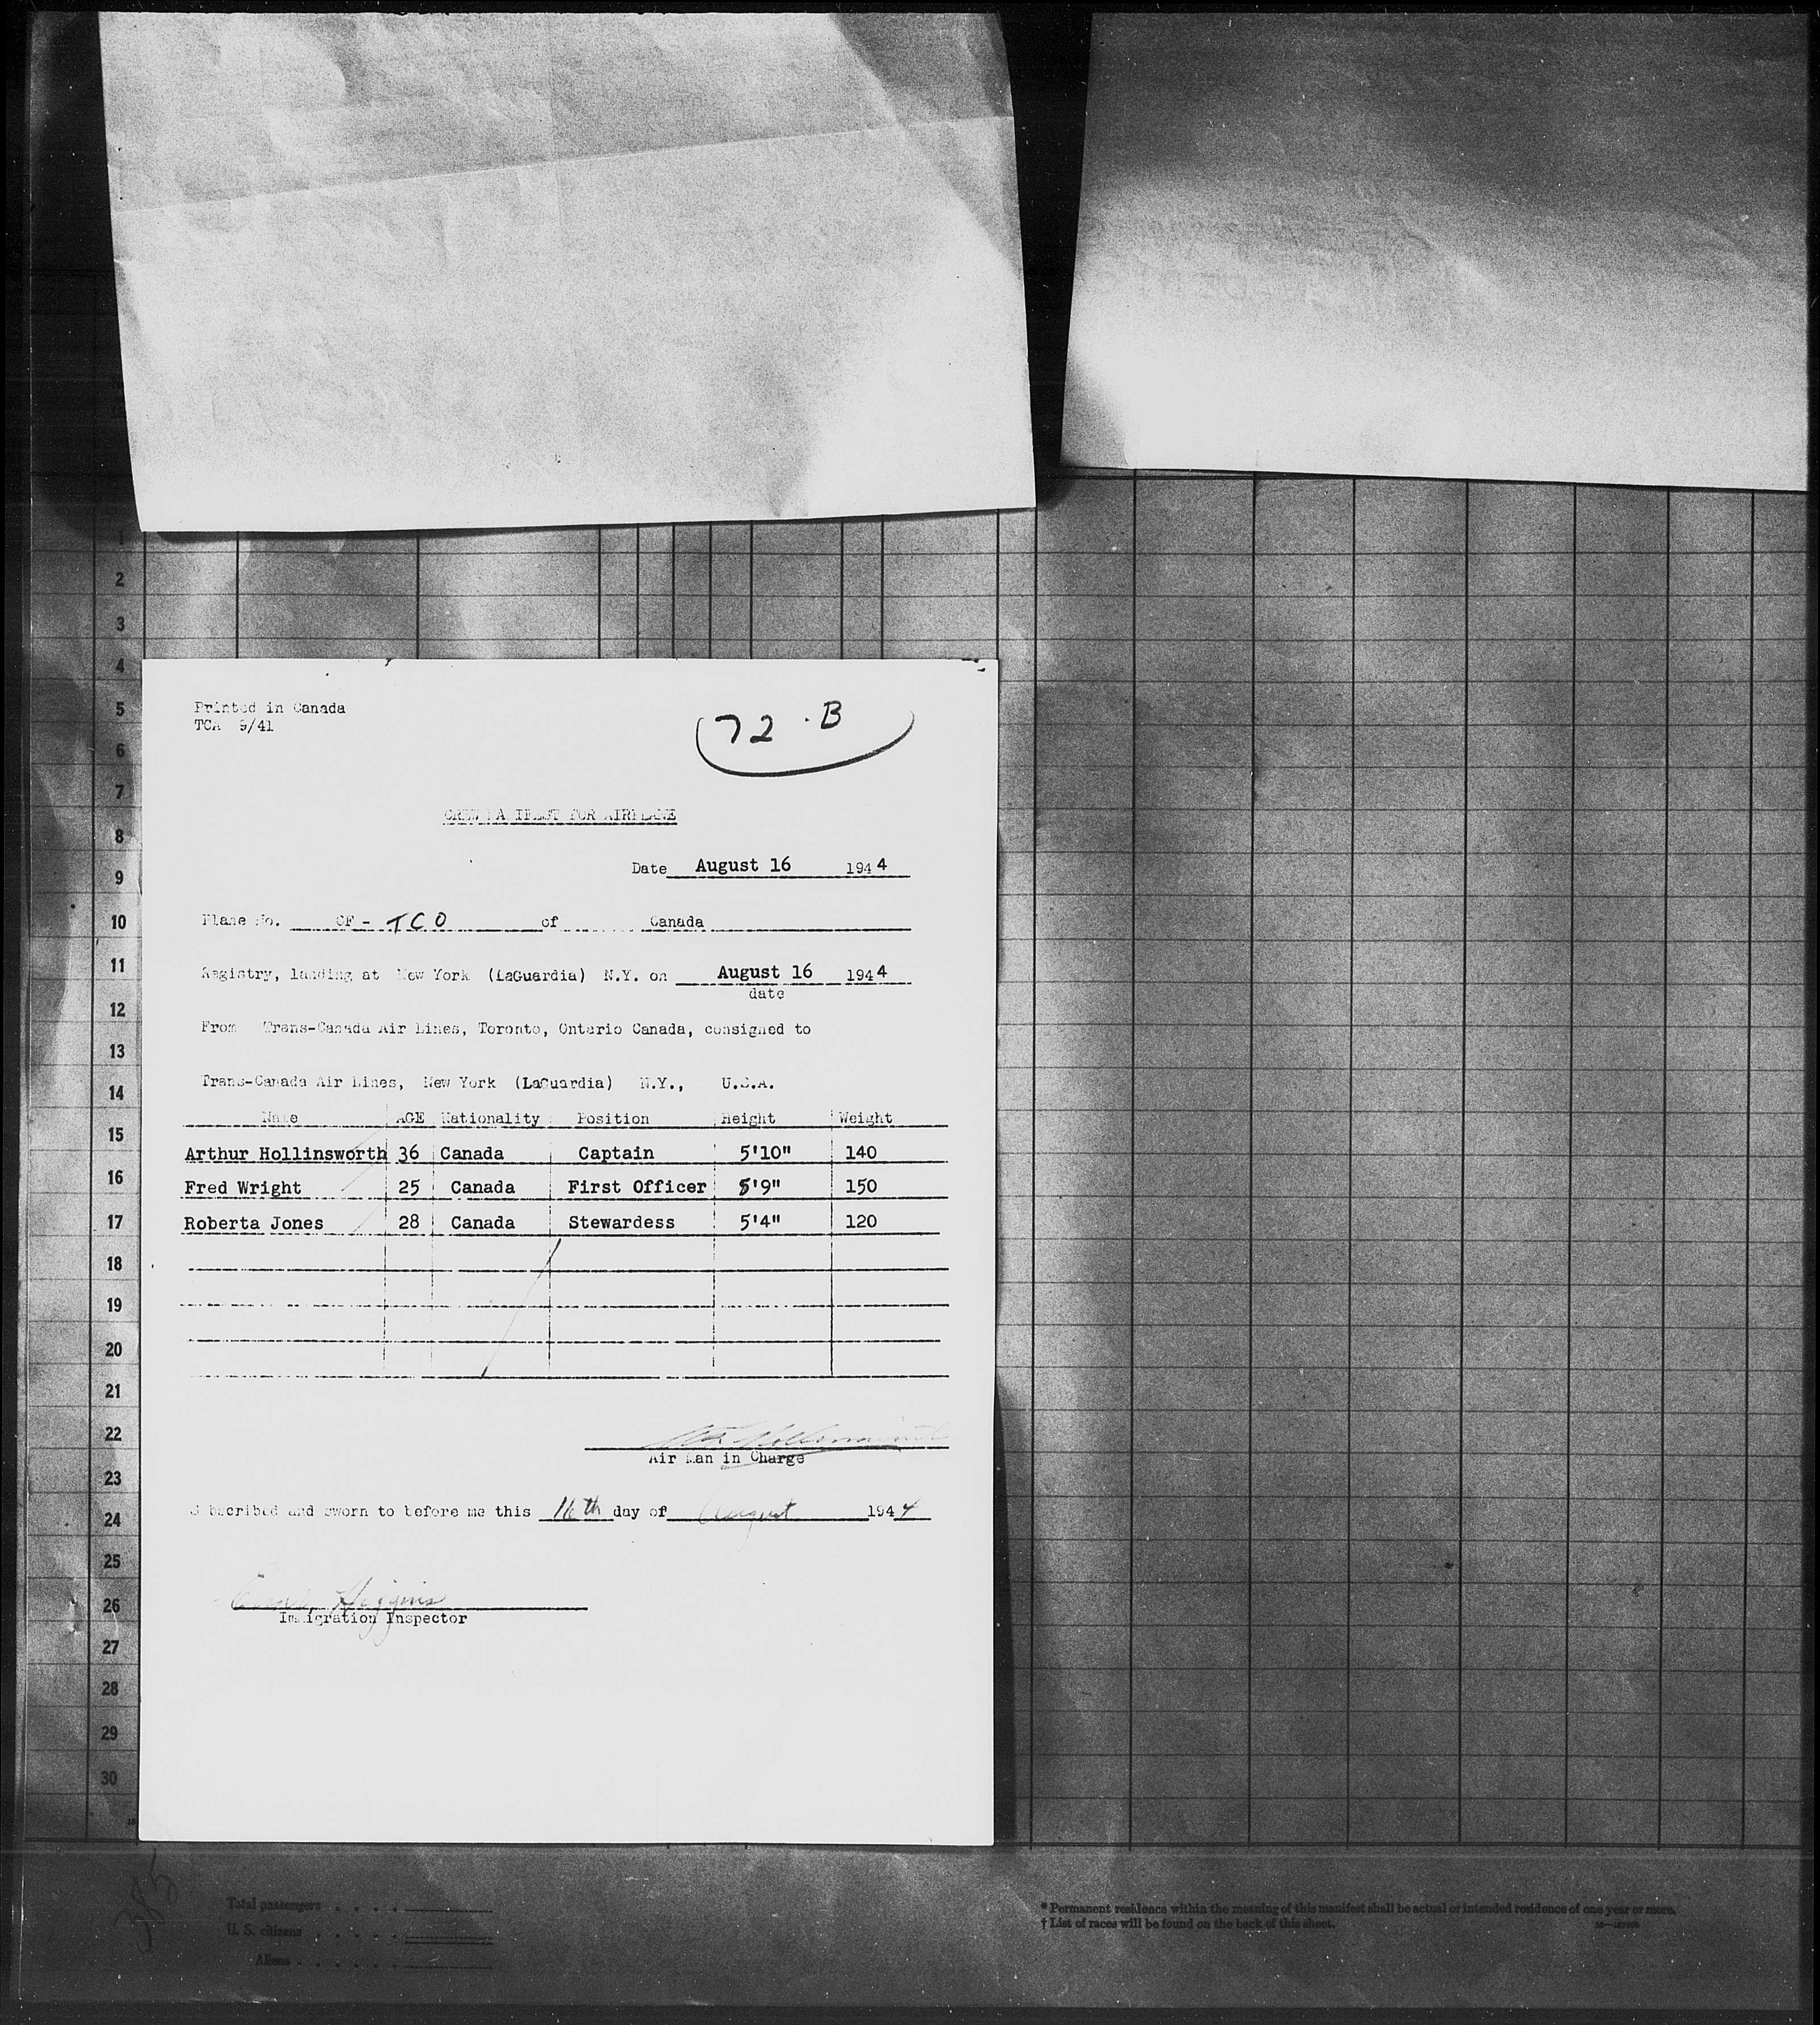 Printed in Canada
TCA 9/41
72 · B
FOR AIRPLANE
Date August 16 1944
Plane No. CF - TCO of Canada
Registry, landing at New York (LaGuardia) N.Y. on August 16 1944
date
From Trans-Canada Air Lines, Toronto, Ontario Canada, consigned to
Trans-Canada Air Lines, New York (LaGuardia) N.Y., U.S.A.
Name AGE Nationality Position Height Weight
Arthur Hollinsworth 36 Canada Captain 5'10" 140
Fred Wright 25 Canada First Officer 5'9" 150
Roberta Jones 28 Canada Stewardess 5'4" 120
Air Man in Charge
Subscribed and sworn to before me this 16th day of August 1944
Higgins
Immigration Inspector
1
2
3
4
5
6
7
8
9
10
11
12
13
14
15
16
17
18
19
20
21
22
23
24
25
26
27
28
29
30
Total passengers . . . .
U. S. citizens . . . . .
Aliens . . . . . .
* Permanent residence within the meaning of this manifest shall be actual or intended residence of one year or more.
† List of races will be found on the back of this sheet.